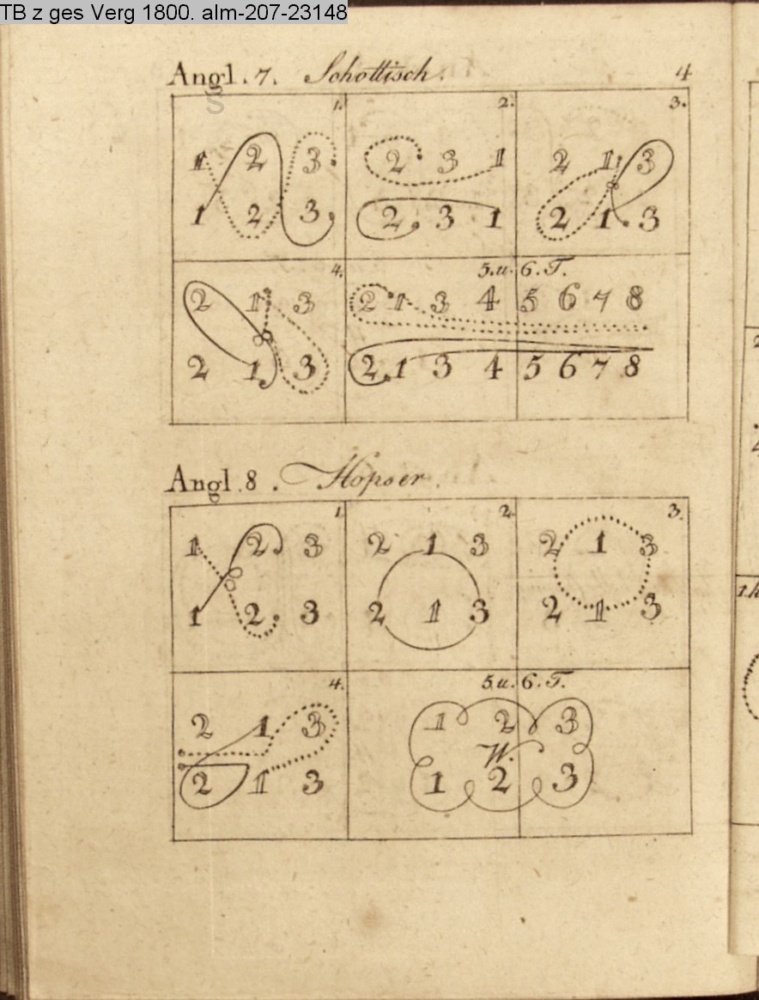 TB z ges Verg 1800. alm-207-23148
Angl. 7. Schottisch. 4
1. 2. 3.
1 2 3 2 3 1 2 1 3
1 2 3 2 3 1 2 1 3
4. 5. u. 6. T.
2 1 3 2 1 3 4 5 6 7 8
2 1 3 2 1 3 4 5 6 7 8
Angl. 8. Hopser.
1. 2. 3.
1 2 3 2 1 3 2 1 3
1 2 3 2 1 3 2 1 3
4. 5. u. 6. T.
2 1 3 1 2 3
W.
2 1 3 1 2 3